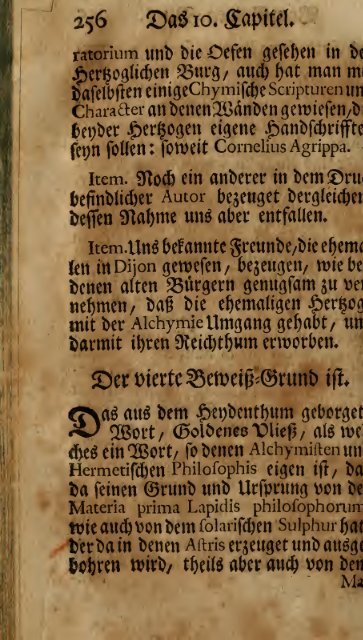 256 Das 10. Capitel.
ratorium und die Oefen gesehen in de
Hertzoglichen Burg, auch hat man m
daselbsten einige Chymische Scripturen un
Character an denen Wänden gewiesen, d
beyder Hertzogen eigene Handschrifften
seyn sollen: soweit Cornelius Agrippa.
Item. Noch ein anderer in dem Dru
befindlicher Autor bezeuget dergleichen
dessen Nahme uns aber entfallen.
Item. Uns bekannte Freunde, die ehema
len in Dijon gewesen, bezeugen, wie be
denen alten Bürgern genugsam zu ve
nehmen, daß die ehemaligen Hertzog
mit der Alchymie Umgang gehabt, un
darmit ihren Reichthum erworben.
Der vierte Beweiß-Grund ist.
Das aus dem Heydenthum geborget
Wort, Goldenes Vließ, als we
ches ein Wort, so denen Alchymisten un
Hermetischen Philosophis eigen ist, da
da seinen Grund und Ursprung von de
Materia prima Lapidis philosophorum
wie auch von dem solarischen Sulphur hat
der da in denen Astris erzeuget und ausge
bohren wird, theils aber auch von den
Ma